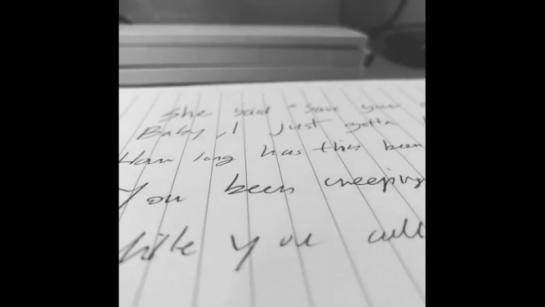 She said "Save your
Baby, I just gotta
How long has this been
You been creeping
While you call